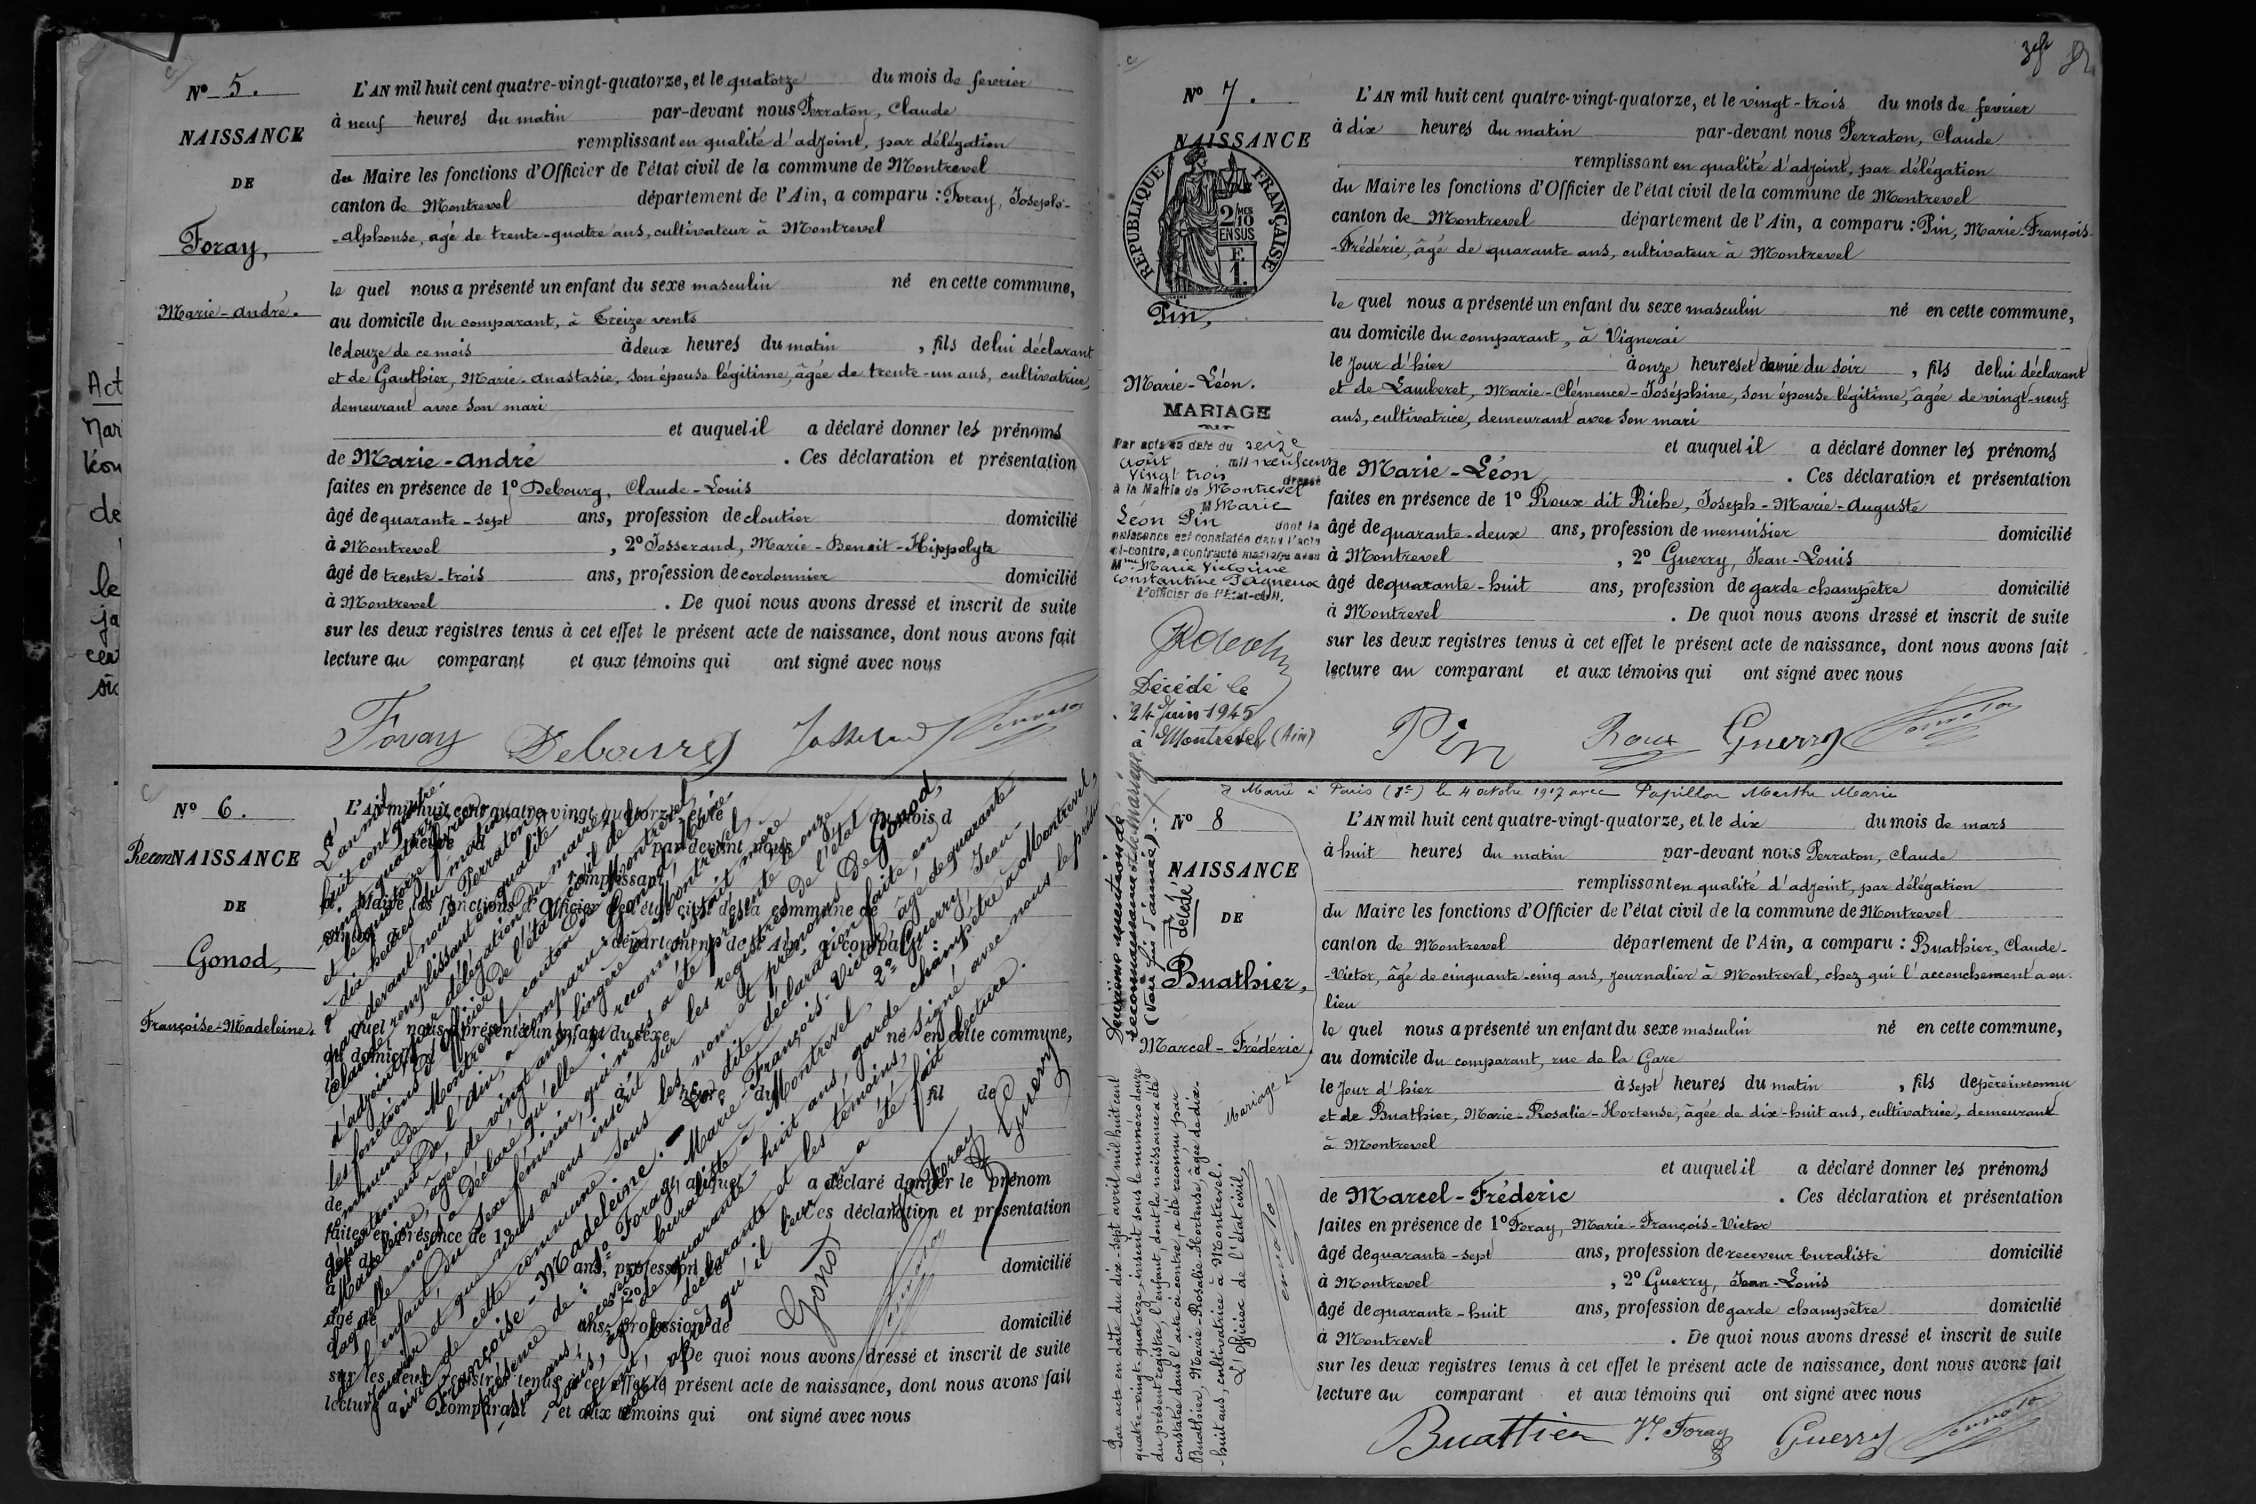 Act
nar
léon
de
le
ja
cer
N° 5.
NAISSANCE
DE
Foray,
Marie-André.
L'AN mil huit cent quatre-vingt-quatorze, et le quatorze du mois de fevrier
à neuf heures du matin par-devant nous Perraton, Claude
remplissant en qualité d'adjoint, par délégation
du Maire les fonctions d'Officier de l'état civil de la commune de Montrevel
canton de Montrevel département de l'Ain, a comparu : Foray, Joseph-
-Alphonse, agé de trente-quatre ans, cultivateur à Montrevel
le quel nous a présenté un enfant du sexe masculin né en cette commune,
au domicile du comparant, à Treize vents
le douze de ce mois à deux heures du matin, fils de lui déclarant
et de Gauthier, Marie-Anastasie, son épouse légitime, âgée de trente-un ans, cultivatrice,
demeurant avec son mari
et auquel il a déclaré donner les prénoms
de Marie-André. Ces déclaration et présentation
faites en présence de 1° Debourg, Claude-Louis
âgé de quarante-sept ans, profession de cloutier domicilié
à Montrevel, 2° Josserand, Marie-Benoit-Hippolyte
âgé de trente-trois ans, profession de cordonnier domicilié
à Montrevel. De quoi nous avons dressé et inscrit de suite
sur les deux registres tenus à cet effet le présent acte de naissance, dont nous avons fait
lecture au comparant et aux témoins qui ont signé avec nous
Foray Debourg Josserand
N° 6.
ReconNAISSANCE
DE
Gonod,
Françoise-Madeleine.
L'AN mil huit cent quatre-vingt-quatorze, et le du mois d
heures d par-devant nous
remplissant
d Maire les fonctions d'Officier de l'état civil de la commune de
département de l'Ain, a comparu :
quel nous a présenté un enfant du sexe né en cette commune,
au domicile d
à heure du fil de
auquel a déclaré donner le prénom
Ces déclaration et présentation
faites en présence de 1°
ans, profession de domicilié
à 2°
âgé de ans, profession de domicilié
De quoi nous avons dressé et inscrit de suite
sur les deux registres tenus à cet effet le présent acte de naissance, dont nous avons fait
lecture a comparant et aux témoins qui ont signé avec nous
L'an mil
huit cent quatre-
-vingt-quatorze
et le quatorze fevrier
à dix heures du matin
par devant nous Perraton
Claude, remplissant en qualité
d'adjoint, par délégation du maire
les fonctions d'officier de l'état civil de la
commune de Montrevel, canton de Montrevel
département de l'Ain, a comparu : Gonod, Marie-
-Madeleine, âgée de vingt ans, lingère à Montrevel,
laquelle nous a déclaré qu'elle se reconnaissait mère
de l'enfant, du sexe féminin, qui nous a été présenté le onze
Janvier et que nous avons inscrit sur les registres de l'état
civil de cette commune sous les nom et prénoms de Gonod,
Françoise-Madeleine. La dite déclaration faite, en
présence de : 1° Foray, Marie-François-Victor, âgé de quarante-
-sept ans, receveur buraliste à Montrevel, 2° Guerry, Jean-
-Louis, âgé de quarante-huit ans, garde champêtre à Montrevel,
et ont, la déclarante et les témoins, signé avec nous le présent
acte après qu'il leur en a été fait lecture.
Gonod Vr Foray Guerry
N° 7.
NAISSANCE
RÉPUBLIQUE FRANÇAISE
2/10 MES
EN SUS
F.
1.
Pin,
Marie-Léon.
MARIAGE
Par acte en date du seize
août mil neuf cent
vingt trois dressé
à la Mairie de Montrevel
M Marie
Léon Pin dont la
naissance est constatée dans l'acte
ci-contre, a contracté mariage avec
Mme Marie Victorine
Constantine Pagneux
L'officier de l'Etat-civil.
Décédé le
24 Juin 1945
à Montrevel (Ain)
L'AN mil huit cent quatre-vingt-quatorze, et le vingt-trois du mois de fevrier
à dix heures du matin par-devant nous Perraton, Claude
remplissant en qualité d'adjoint, par délégation
du Maire les fonctions d'Officier de l'état civil de la commune de Montrevel
canton de Montrevel département de l'Ain, a comparu : Pin, Marie-François-
-Frédéric, âgé de quarante ans, cultivateur à Montrevel
le quel nous a présenté un enfant du sexe masculin né en cette commune,
au domicile du comparant, à Vignerai
le jour d'hier à onze heures et demie du soir, fils de lui déclarant
et de Lamberet, Marie-Clémence-Joséphine, son épouse légitime, âgée de vingt-neuf
ans, cultivatrice, demeurant avec son mari
et auquel il a déclaré donner les prénoms
de Marie-Léon. Ces déclaration et présentation
faites en présence de 1° Roux dit Riche, Joseph-Marie-Auguste
âgé de quarante-deux ans, profession de menuisier domicilié
à Montrevel, 2° Guerry, Jean-Louis
âgé de quarante-huit ans, profession de garde champêtre domicilié
à Montrevel. De quoi nous avons dressé et inscrit de suite
sur les deux registres tenus à cet effet le présent acte de naissance, dont nous avons fait
lecture au comparant et aux témoins qui ont signé avec nous
Pin Roux Guerry
Marié à Paris (8e) le 4 octobre 1917 avec Papillon Marthe Marie
N° 8
NAISSANCE
DE
Buathier,
Marcel-Fréderic.
décédé
Mariage
Deuxième mention de
reconnaissance et de mariage
(Voir fin d'année)
Par acte en date du dix-sept avril mil huit cent
quatre-vingt-quatorze, inscrit sous le numéro douze
du présent registre, l'enfant dont la naissance a été
constatée dans l'acte ci-contre, a été reconnu par
Buathier, Marie-Rosalie-Hortense, âgée de dix-
-huit ans, cultivatrice à Montrevel.
L'officier de l'état civil,
L'AN mil huit cent quatre-vingt-quatorze, et le dix du mois de mars
à huit heures du matin par-devant nous Perraton, Claude
remplissant en qualité d'adjoint, par délégation
du Maire les fonctions d'Officier de l'état civil de la commune de Montrevel
canton de Montrevel département de l'Ain, a comparu : Buathier, Claude-
-Victor, âgé de cinquante-cinq ans, journalier à Montrevel, chez qui l'accouchement a eu
lieu
le quel nous a présenté un enfant du sexe masculin né en cette commune,
au domicile du comparant, rue de la Gare
le jour d'hier à sept heures du matin, fils de père inconnu
et de Buathier, Marie-Rosalie-Hortense, âgée de dix-huit ans, cultivatrice, demeurant
à Montrevel
et auquel il a déclaré donner les prénoms
de Marcel-Fréderic. Ces déclaration et présentation
faites en présence de 1° Foray, Marie-François-Victor
âgé de quarante-sept ans, profession de receveur buraliste domicilié
à Montrevel, 2° Guerry, Jean-Louis
âgé de quarante-huit ans, profession de garde champêtre domicilié
à Montrevel. De quoi nous avons dressé et inscrit de suite
sur les deux registres tenus à cet effet le présent acte de naissance, dont nous avons fait
lecture au comparant et aux témoins qui ont signé avec nous
Buathier Vr Foray Guerry